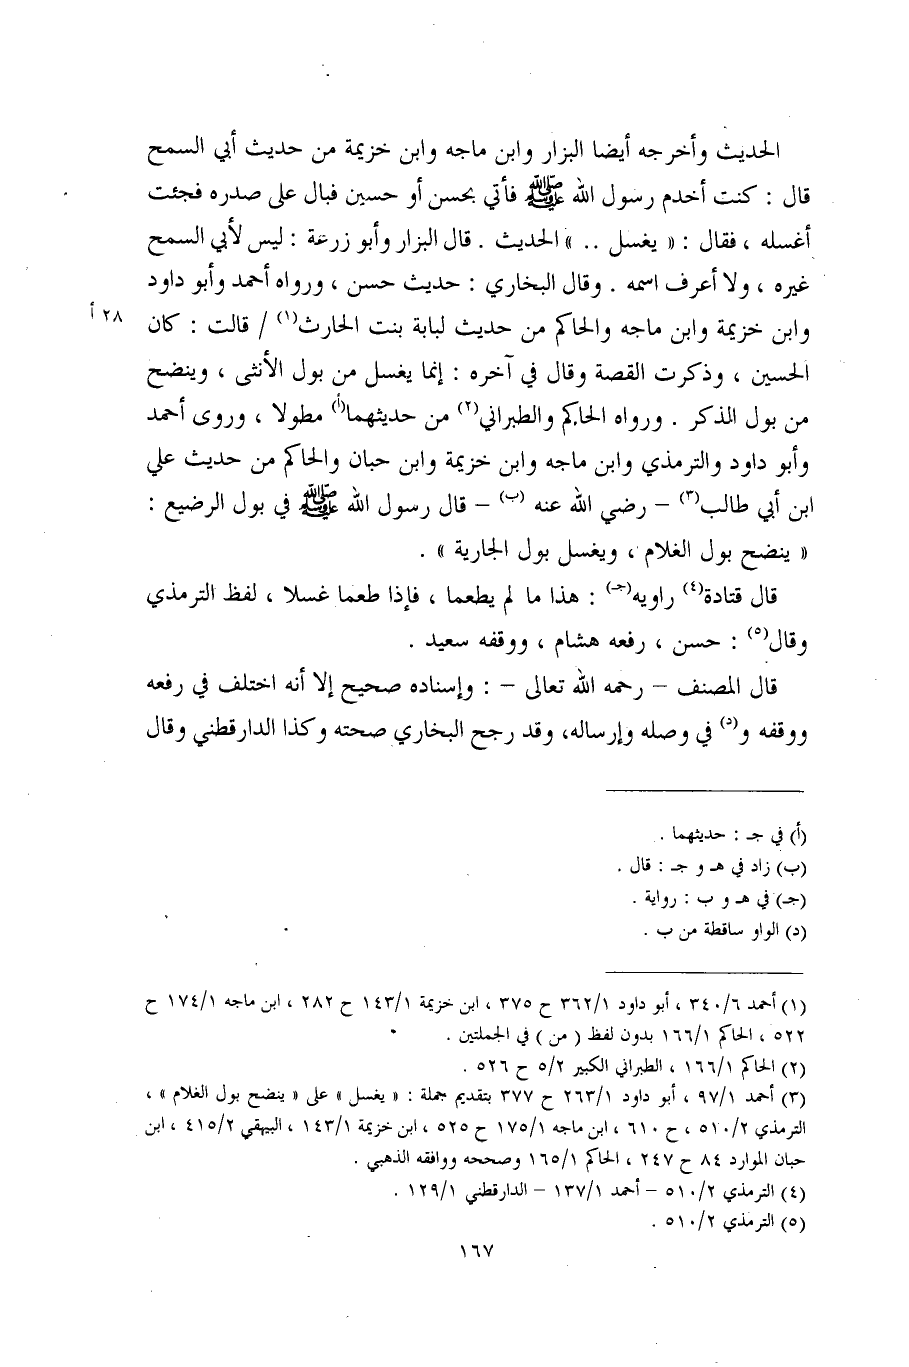 الحديث وأخرجه أيضا البزار وابن ماجه وابن خزيمة من حديث أبي السمح
قال : كنت أخدم رسول الله ﷺ فأتي بحسن أو حسين فبال على صدره فجئت
أغسله ، فقال : « يغسل .. » الحديث . قال البزار وأبو زرعة : ليس لأبي السمح
غيره ، ولا أعرف اسمه . وقال البخاري : حديث حسن ، ورواه أحمد وأبو داود
وابن خزيمة وابن ماجه والحاكم من حديث لبابة بنت الحارث(١) / قالت : كان
٢٨ أ
الحسين ، وذكرت القصة وقال في آخره : إنما يغسل من بول الأنثى ، وينضح
من بول الذكر . ورواه الحاكم والطبراني(٢) من حديثهما(أ) مطولا ، وروى أحمد
وأبو داود والترمذي وابن ماجه وابن خزيمة وابن حبان والحاكم من حديث علي
ابن أبي طالب(٣) – رضي الله عنه (ب) – قال رسول الله ﷺ في بول الرضيع :
« ينضح بول الغلام ، ويغسل بول الجارية » .
قال قتادة(٤) راويه(جـ) : هذا ما لم يطعما ، فإذا طعما غسلا ، لفظ الترمذي
وقال(٥) : حسن ، رفعه هشام ، ووقفه سعيد .
قال المصنف – رحمه الله تعالى – : وإسناده صحيح إلا أنه اختلف في رفعه
ووقفه و(د) في وصله وإرساله، وقد رجح البخاري صحته وكذا الدارقطني وقال
(أ) في جـ : حديثهما .
(ب) زاد في هـ و جـ : قال .
(جـ) في هـ و ب : رواية .
(د) الواو ساقطة من ب .
(١) أحمد ٣٤٠/٦ ، أبو داود ٣٦٢/١ ح ٣٧٥ ، ابن خزيمة ١٤٣/١ ح ٢٨٢ ، ابن ماجه ١٧٤/١ ح
٥٢٢ ، الحاكم ١٦٦/١ بدون لفظ ( من ) في الجملتين .
(٢) الحاكم ١٦٦/١ ، الطبراني الكبير ٥/٢ ح ٥٢٦ .
(٣) أحمد ٩٧/١ ، أبو داود ٢٦٣/١ ح ٣٧٧ بتقديم جملة : « يغسل » على « ينضح بول الغلام » ،
الترمذي ٥١٠/٢ ، ح ٦١٠ ، ابن ماجه ١٧٥/١ ح ٥٢٥ ، ابن خزيمة ١٤٣/١ ، البيهقي ٤١٥/٢ ، ابن
حبان الموارد ٨٤ ح ٢٤٧ ، الحاكم ١٦٥/١ وصححه ووافقه الذهبي .
(٤) الترمذي ٥١٠/٢ – أحمد ١٣٧/١ – الدارقطني ١٢٩/١ .
(٥) الترمذي ٥١٠/٢ .
١٦٧